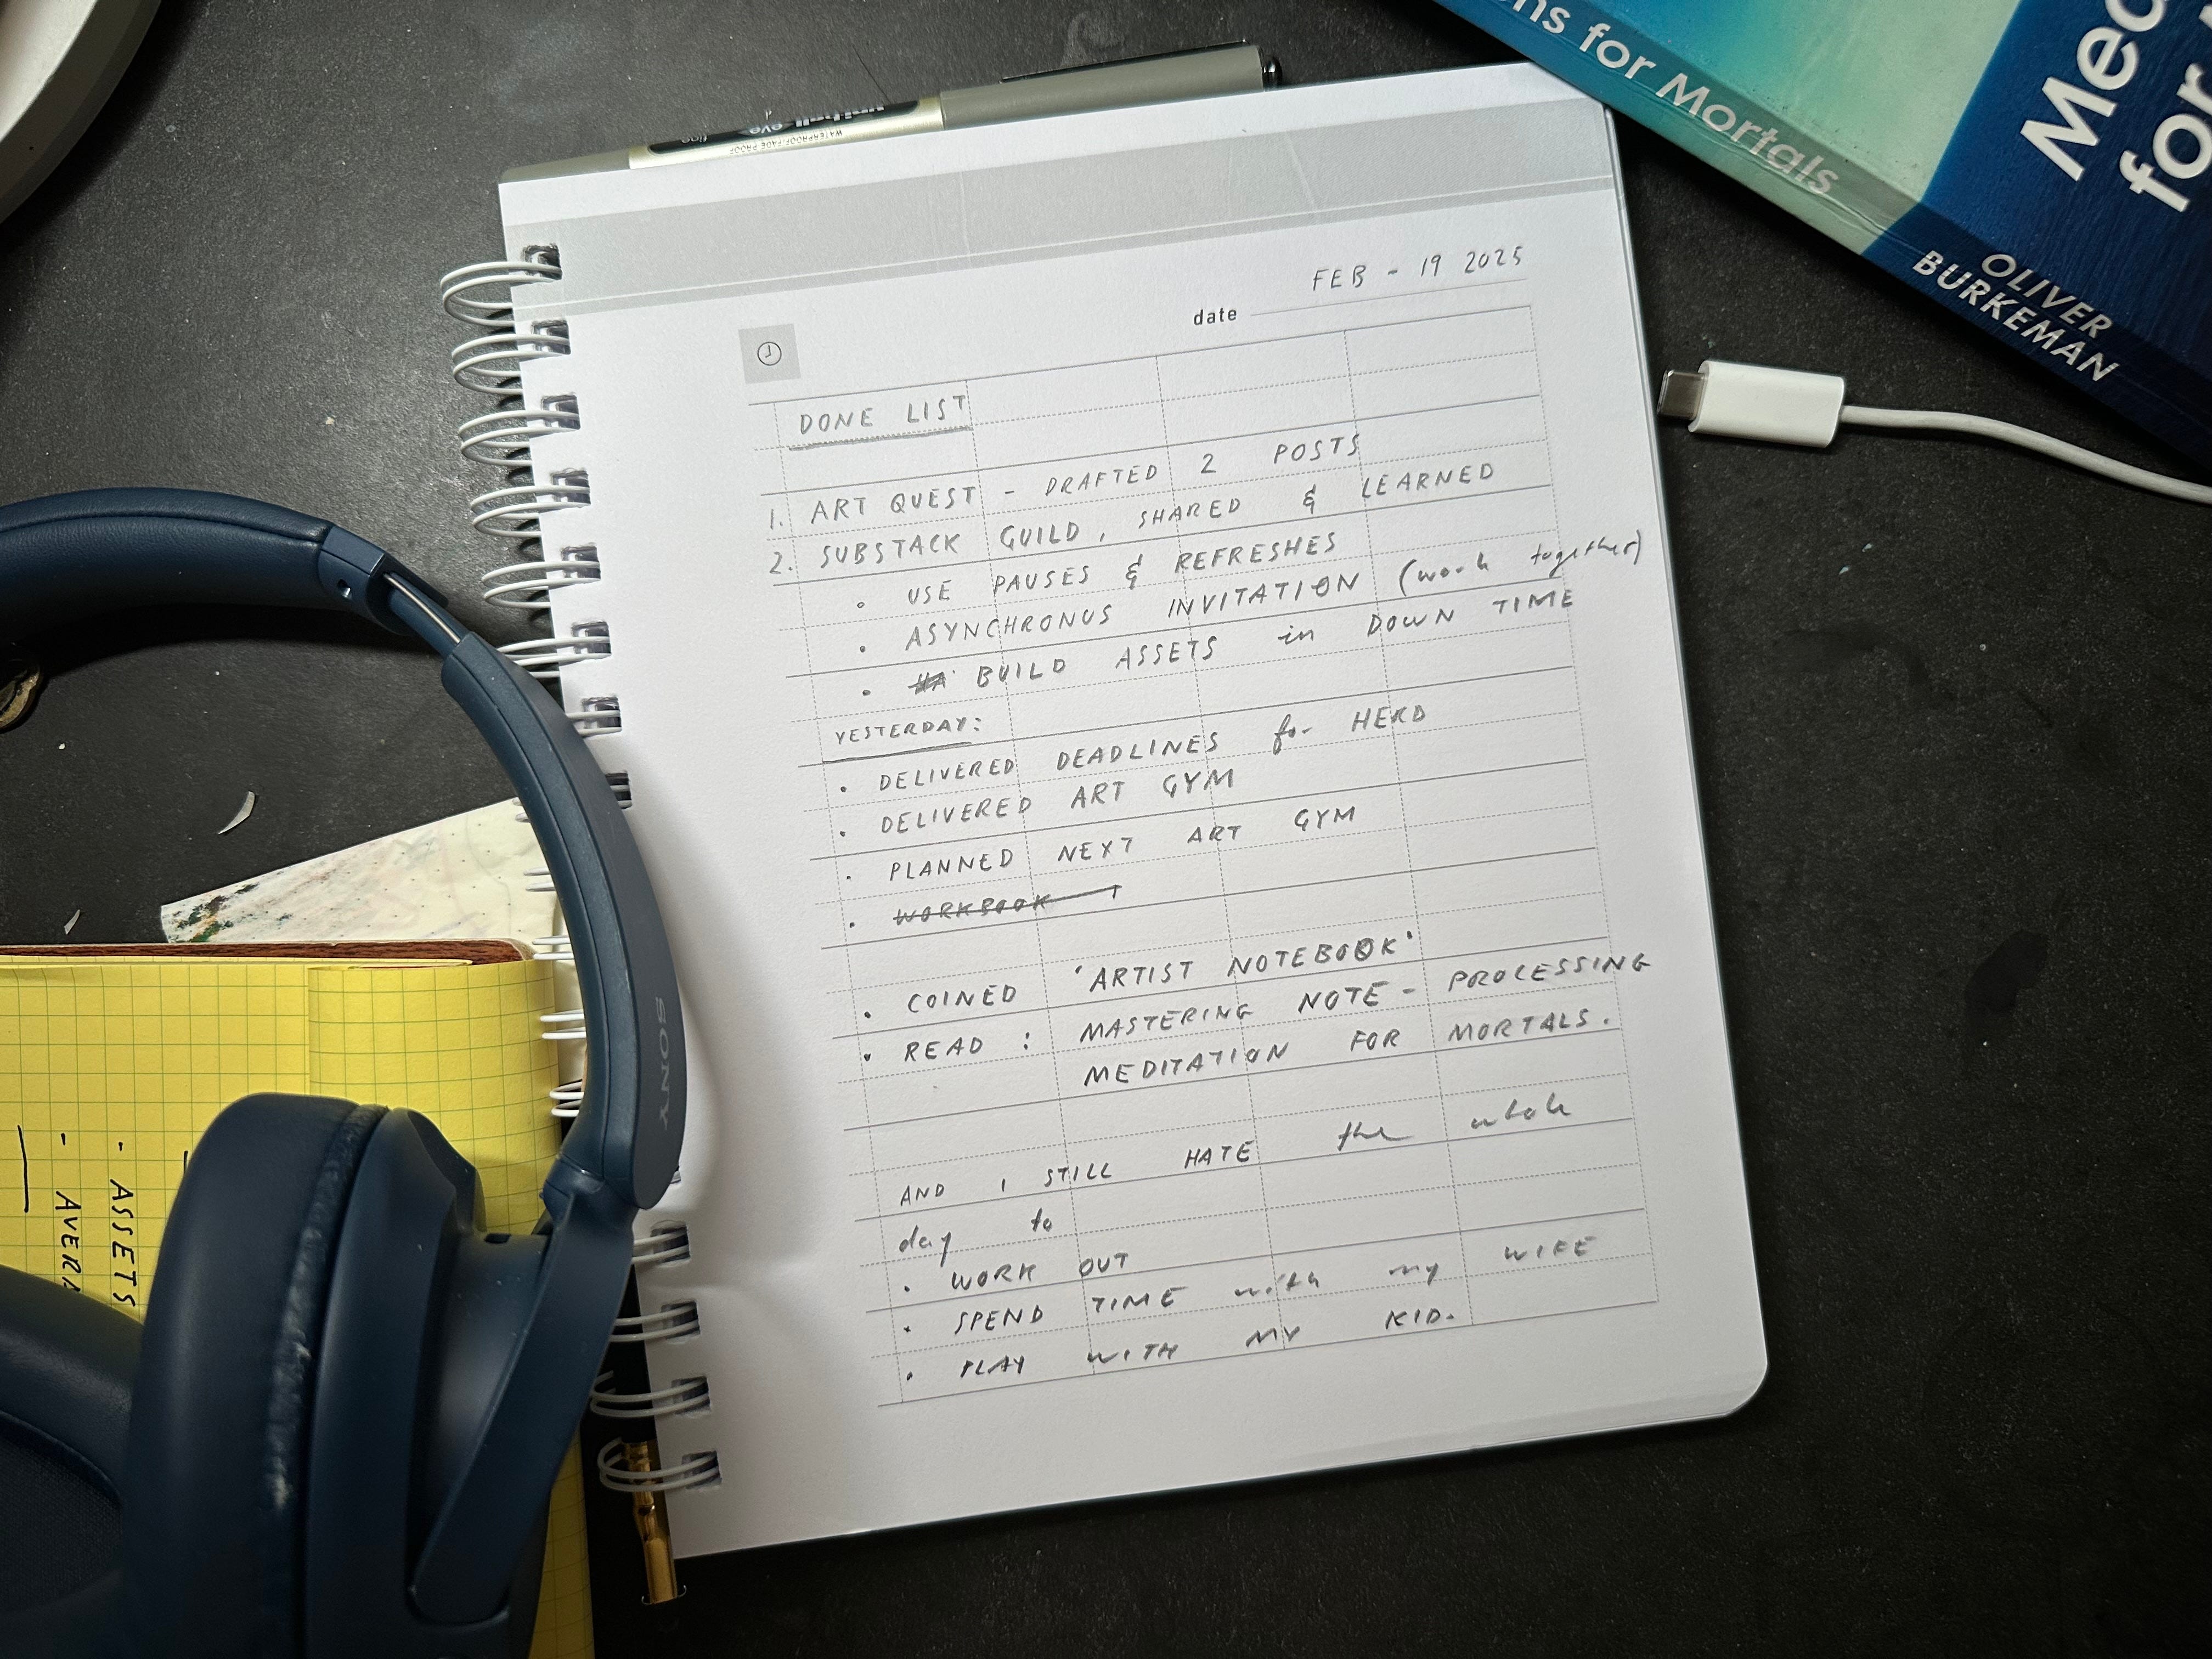 FEB - 19 2025
date
DONE LIST
1. ART QUEST - DRAFTED 2 POSTS
2. SUBSTACK GUILD, SHARED & LEARNED
• USE PAUSES & REFRESHES
• ASYNCHRONUS INVITATION (work together)
• BUILD ASSETS in DOWN TIME
YESTERDAY:
• DELIVERED DEADLINES for HERD
• DELIVERED ART GYM
• PLANNED NEXT ART GYM
• WORKBOOK
• COINED 'ARTIST NOTEBOOK'
• READ : MASTERING NOTE - PROCESSING
MEDITATION FOR MORTALS.
AND I STILL HATE the whole
day to
• WORK OUT
• SPEND TIME with my WIFE
• PLAY WITH MY KID.
ns for Mortals
Med
for
OLIVER
BURKEMAN
uni-ball eye
fine
WATERPROOF/FADE PROOF
SONY
- ASSETS
- AVERA